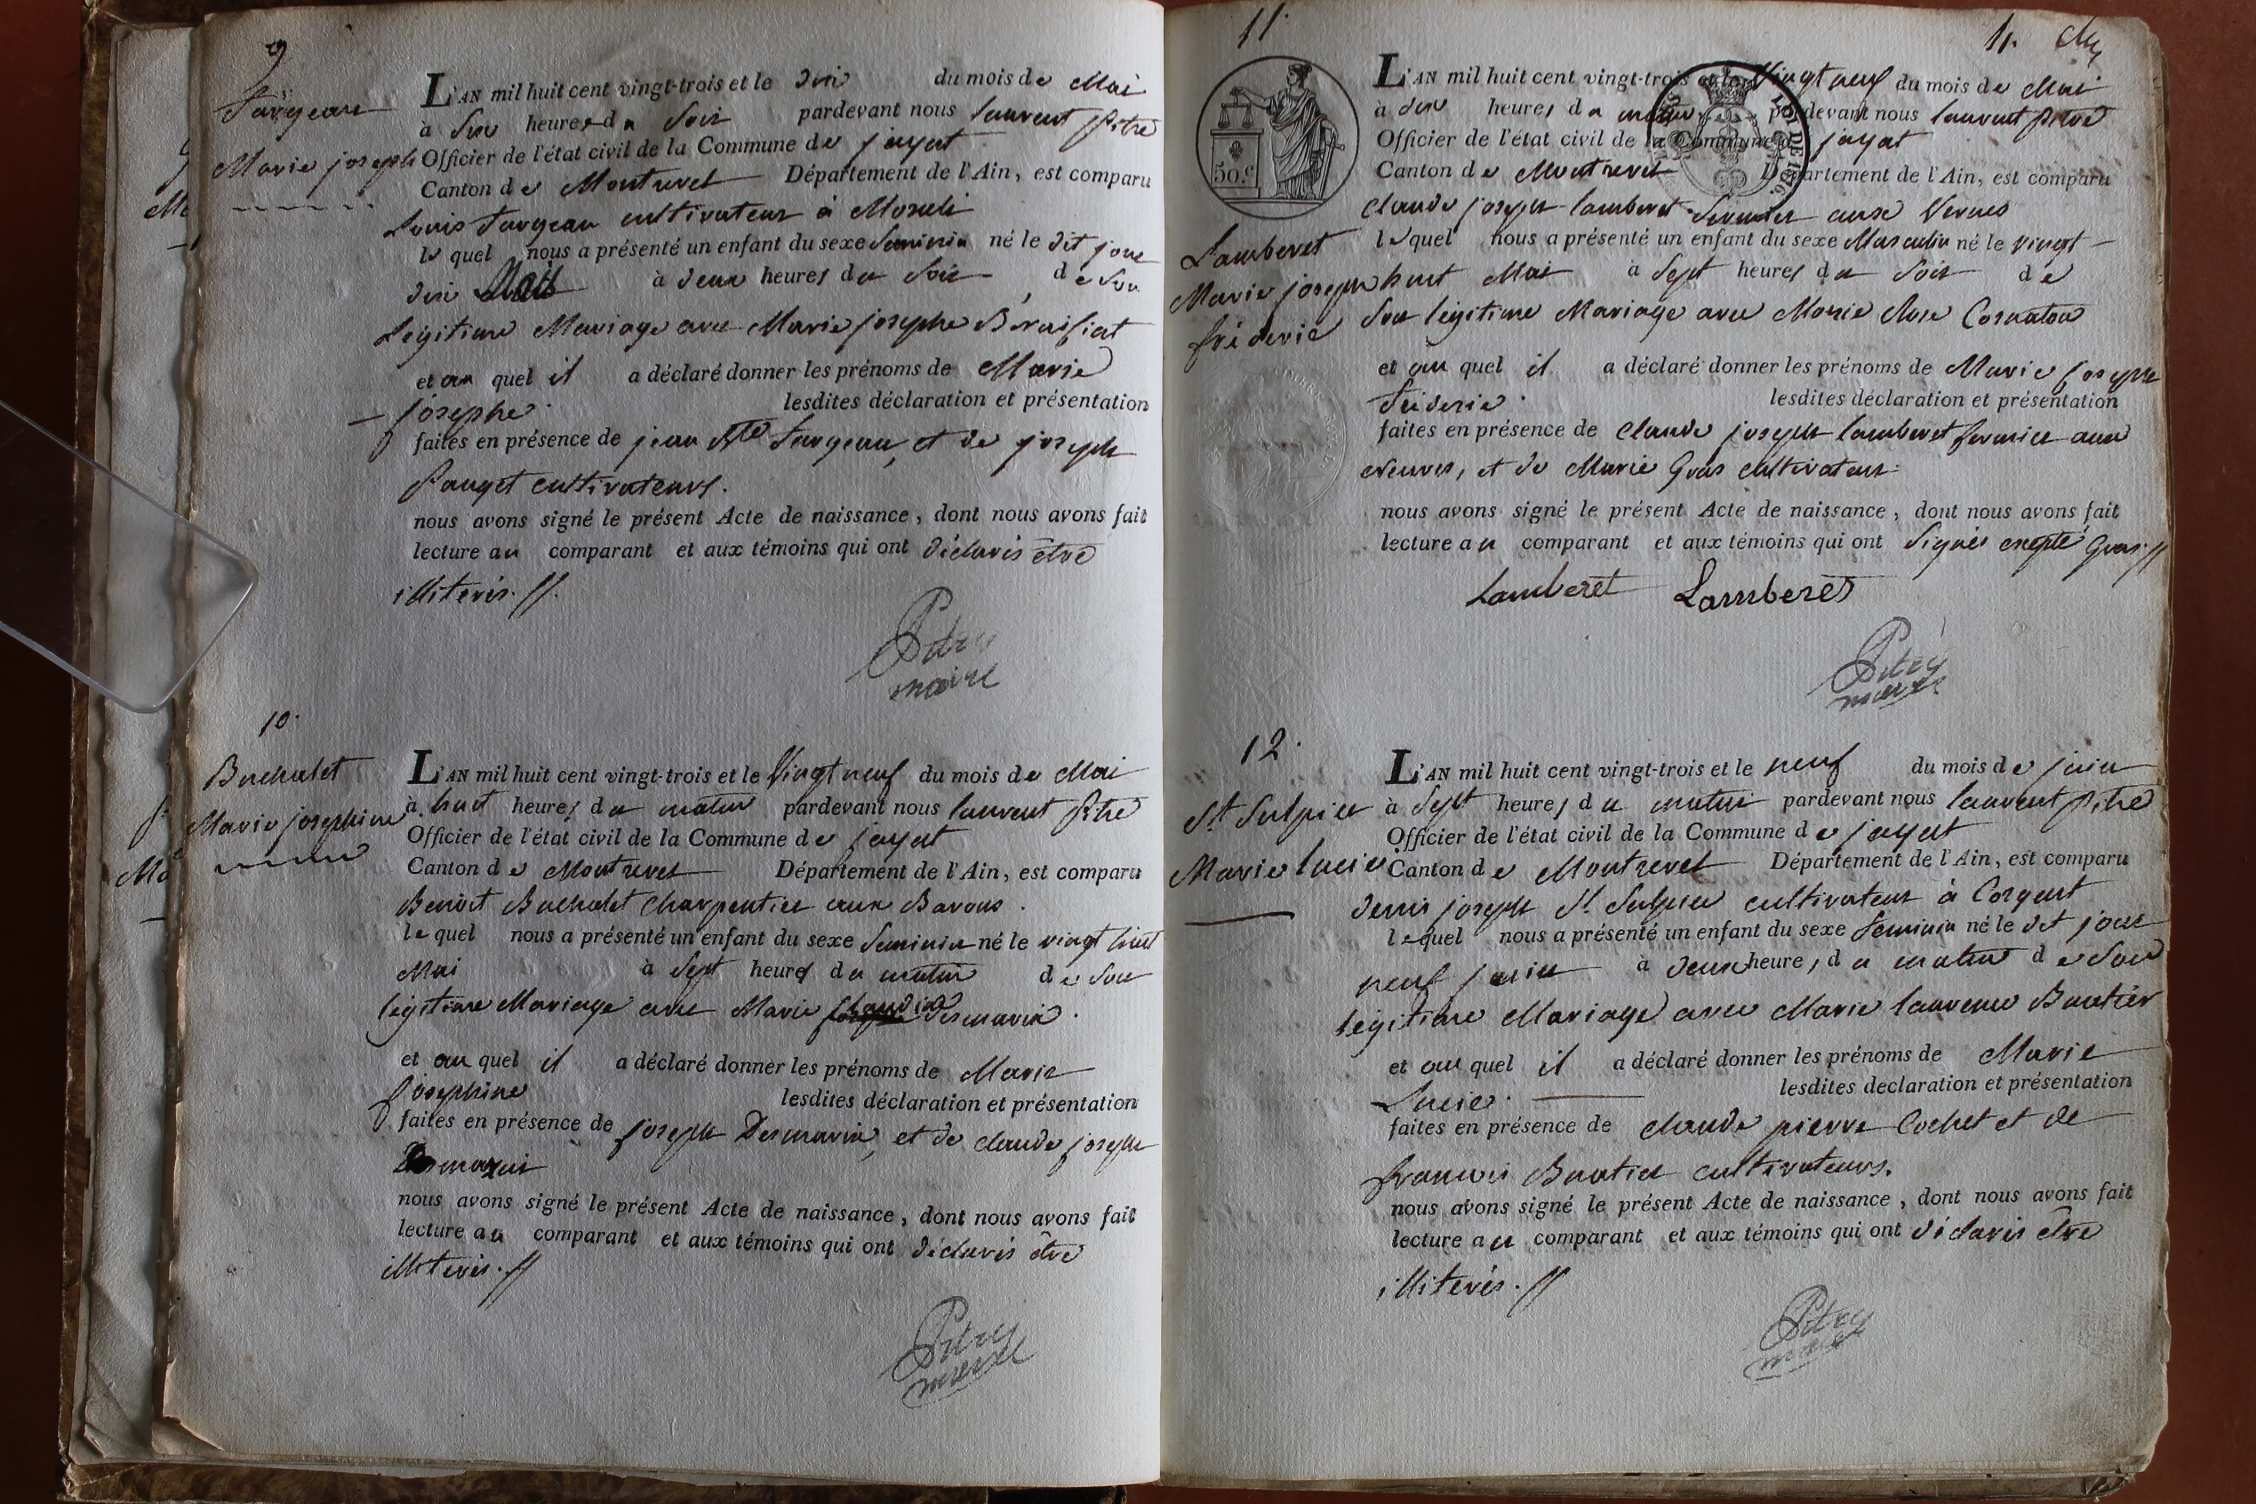 9
Fargeau
Marie joseph
L'AN mil huit cent vingt-trois et le dix du mois de Mai
à six heures du soir pardevant nous laurent Pitre
Officier de l'état civil de la Commune de jayat
Canton de Montrevel Département de l'Ain, est comparu
Louis Fargeau cultivateur à
le quel nous a présenté un enfant du sexe feminin né le dit jour
dix Mai à deux heures du soir de son
légitime Mariage avec Marie josephe
et au quel il a déclaré donner les prénoms de Marie
josephe. lesdites déclaration et présentation
faites en présence de jean Bte Fargeau, et de joseph
Pauget cultivateurs.
nous avons signé le présent Acte de naissance, dont nous avons fait
lecture au comparant et aux témoins qui ont déclarés être
illiterés.//.
Pitre
maire
10.
Buchalet
Marie josephine
L'AN mil huit cent vingt-trois et le Vingt neuf du mois de Mai
à huit heures du matin pardevant nous laurent Pitre
Officier de l'état civil de la Commune de jayat
Canton de Montrevel Département de l'Ain, est comparu
Benoit Buchalet charpentier aux Barons.
le quel nous a présenté un enfant du sexe feminin né le vingt huit
Mai à sept heures du matin de son
légitime Mariage avec Marie claudine Desmaris.
et au quel il a déclaré donner les prénoms de Marie
josephine lesdites déclaration et présentation
faites en présence de joseph Desmaris, et de claude joseph
Desmaris
nous avons signé le présent Acte de naissance, dont nous avons fait
lecture au comparant et aux témoins qui ont déclarés être
illiterés.//
Pitre
maire
11.
11.
50.c
LOI DE 1816.
Lamberet
Marie joseph
fréderic
L'AN mil huit cent vingt-trois et le Vingt neuf du mois de Mai
à dix heures du matin pardevant nous laurent Pitre
Officier de l'état civil de la Commune de jayat
Canton de Montrevel Département de l'Ain, est comparu
claude joseph lamberet fermier aux Vernes
le quel nous a présenté un enfant du sexe Masculin né le vingt
huit Mai à sept heures du soir de
son légitime Mariage avec Marie Rose Cornaton
et au quel il a déclaré donner les prénoms de Marie joseph
fréderic. lesdites déclaration et présentation
faites en présence de claude joseph lamberet fermier aux
vernes, et de Marie Gras cultivateur.
nous avons signé le présent Acte de naissance, dont nous avons fait
lecture au comparant et aux témoins qui ont signés excepté Gras.//
Lamberet Lamberet
Pitre
maire
12.
St Sulpice
Marie lucie
L'AN mil huit cent vingt-trois et le neuf du mois de juin
à sept heures du matin pardevant nous laurent Pitre
Officier de l'état civil de la Commune de jayat
Canton de Montrevel Département de l'Ain, est comparu
denis joseph St Sulpice cultivateur à Corgent
le quel nous a présenté un enfant du sexe feminin né le dit jour
neuf juin à deux heures du matin de son
légitime Mariage avec Marie laurence Boutier
et au quel il a déclaré donner les prénoms de Marie
Lucie. lesdites declaration et présentation
faites en présence de claude pierre Cochet et de
francois Boutier cultivateurs.
nous avons signé le présent Acte de naissance, dont nous avons fait
lecture au comparant et aux témoins qui ont déclarés être
illiterés.//
Pitre
maire